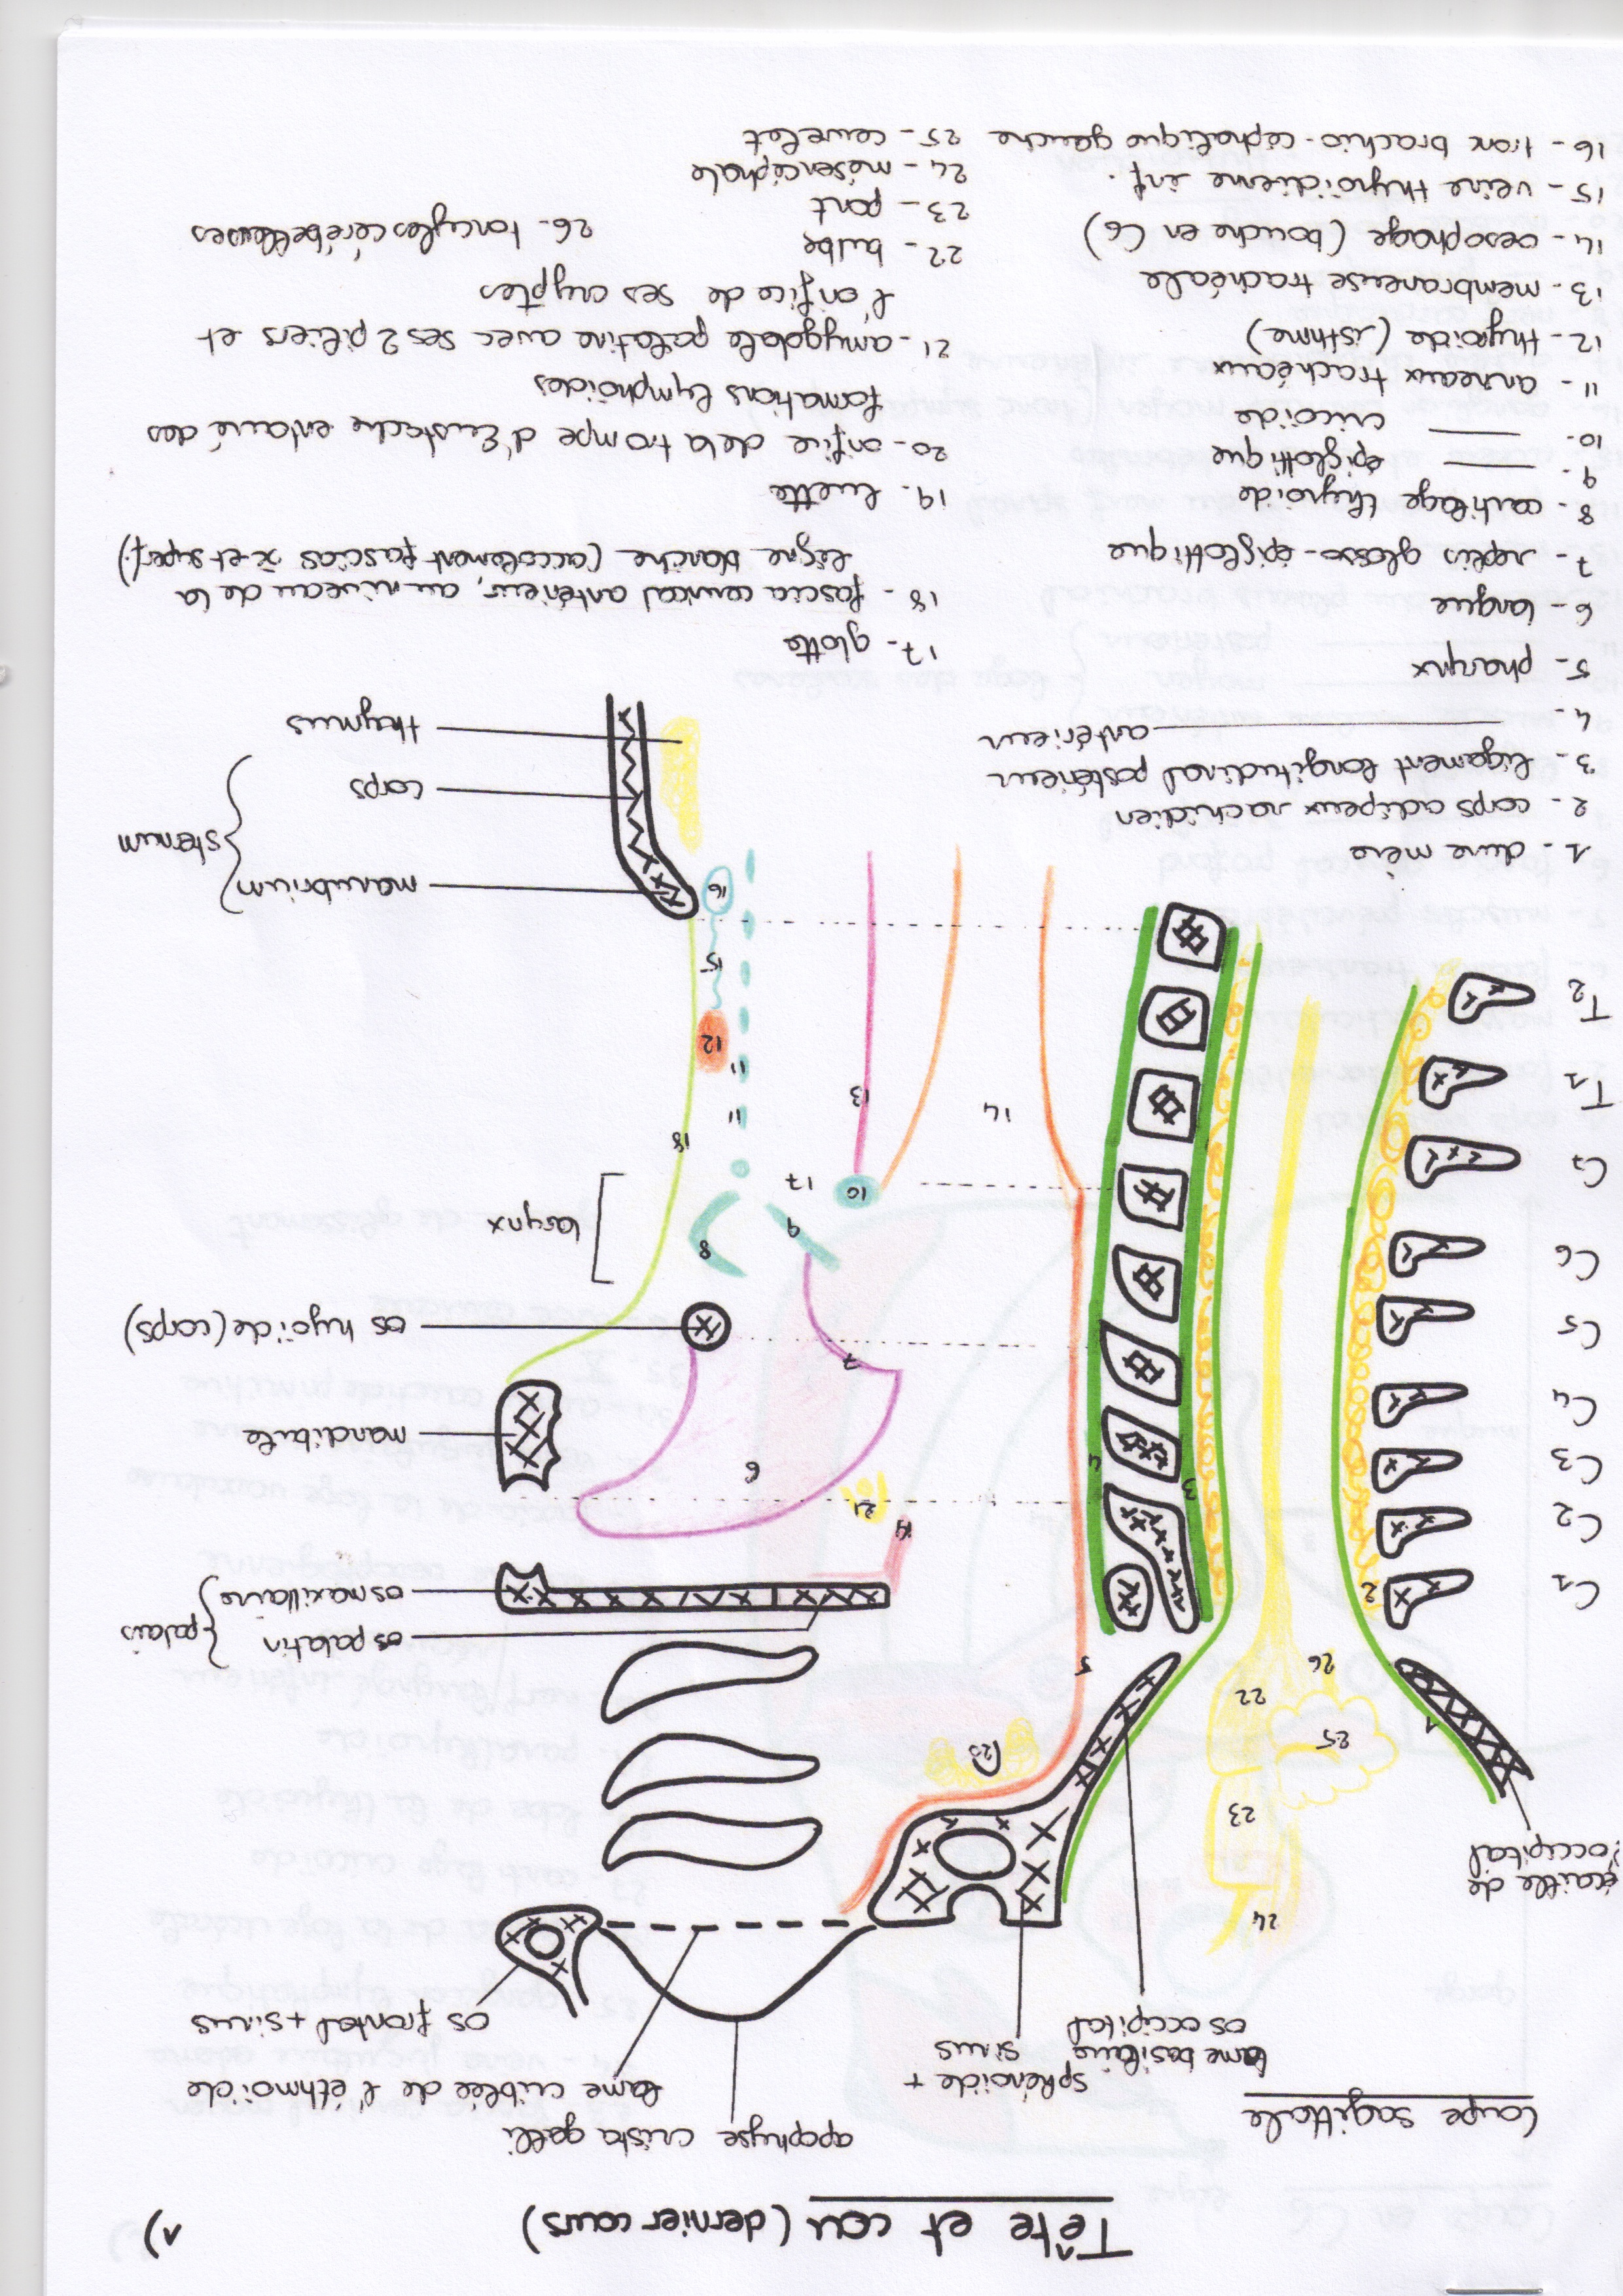 Tête et cou (dernier cours)
1)
Coupe sagittale
apophyse crista galli
lame criblée de l'ethmoïde
os frontal + sinus
sphénoïde +
sinus
lame basilaire
os occipital
écaille de
l'occipital
24
23
25
22
26
1
20
5
os palatin
os maxillaire
palais
C1
C2
C3
C4
C5
C6
C7
T1
T2
2
3
4
19
21
6
mandibule
7
os hyoïde (corps)
larynx
8
9
10
17
18
11
11
13
14
12
15
16
manubrium
corps
sternum
thymus
1 - dure mère
2 - corps adipeux rachidien
3 - ligament longitudinal postérieur
4 - ——— antérieur
5 - pharynx
6 - langue
7 - replis glosso-épiglottique
8 - cartilage thyroïde
9 - —— épiglottique
10 - —— cricoïde
11 - anneaux trachéaux
12 - thyroïde (isthme)
13 - membraneuse trachéale
14 - oesophage (bouche en C6)
15 - veine thyroïdienne inf.
16 - tronc brachio-céphalique gauche
17 - glotte
18 - fascia cervical antérieur, au niveau de la
ligne blanche (accolement fascias x̄ et superf.)
19 - luette
20 - orifice de la trompe d'Eustache entouré des
formations lymphoïdes
21 - amygdale palatine avec ses 2 piliers et
l'orifice de ses cryptes
22 - bulbe
23 - pont
24 - mésencéphale
25 - cervelet
26 - tonsylles cérébelleuses